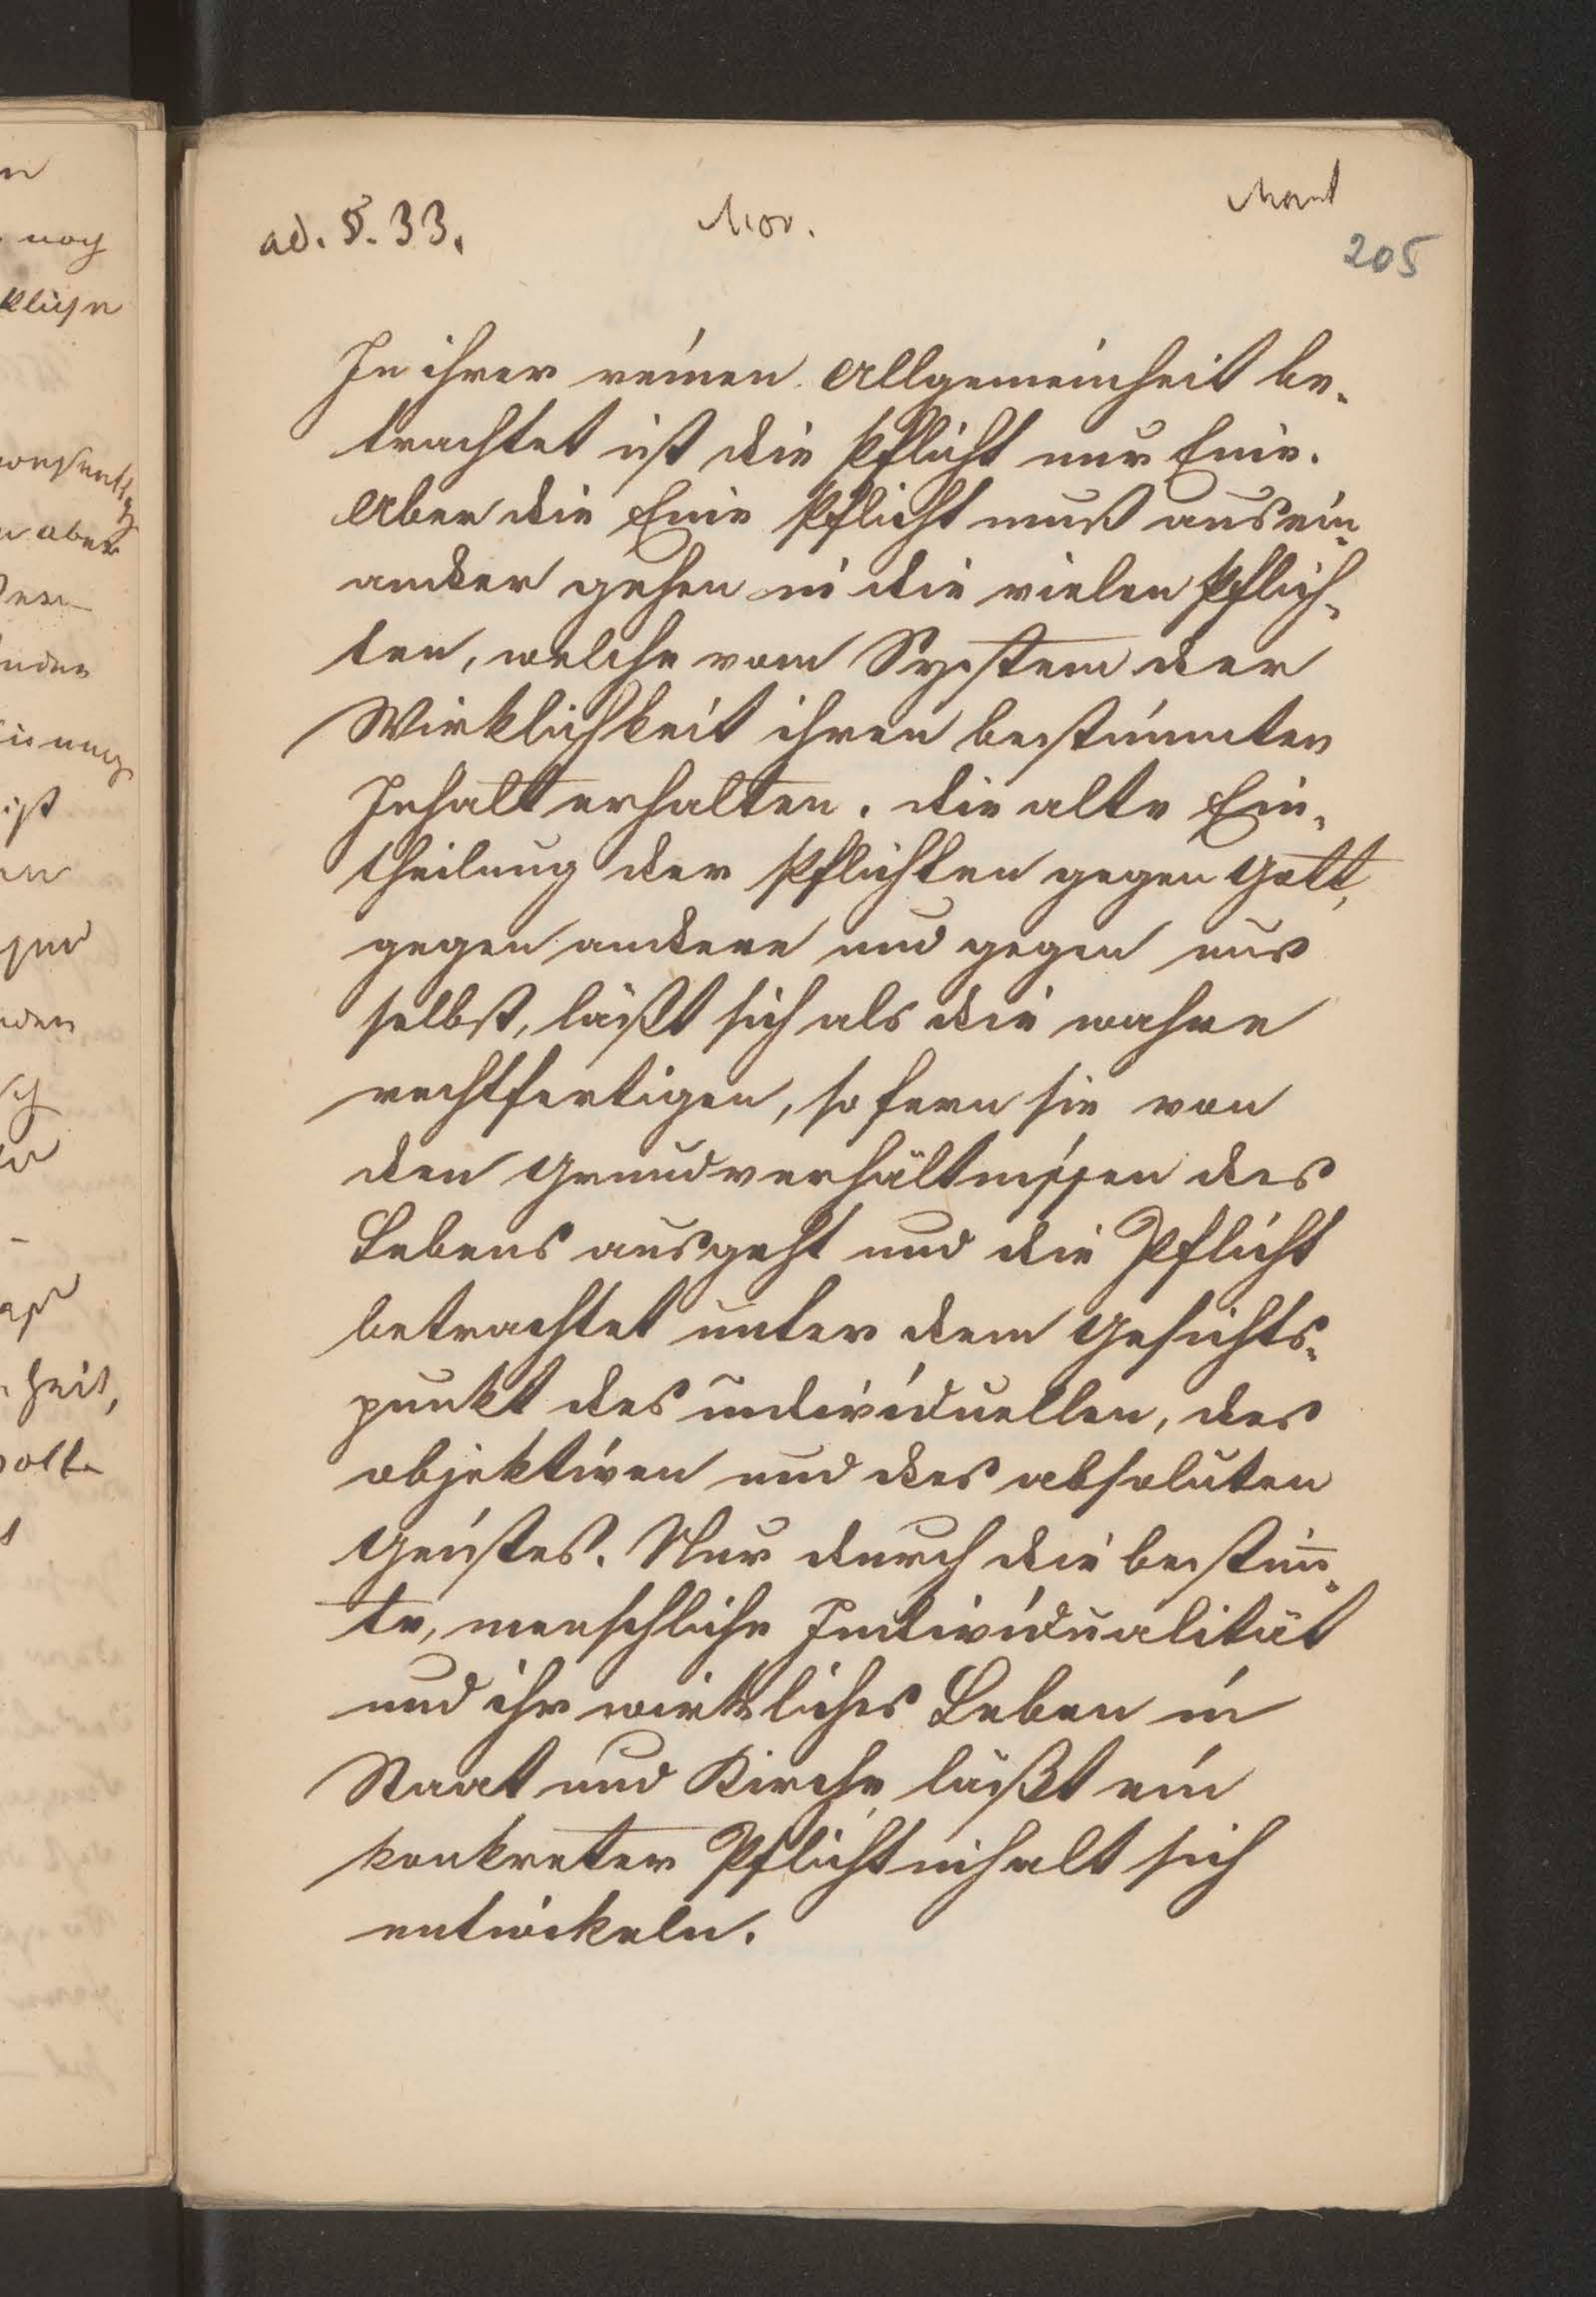 ad. §. 33.
Mor.
205
In ihrer reinen Allgemeinheit be-
trachtet ist die Pflicht nur Eine.
Aber die Eine Pflicht muß ausein-
ander gehen in die vielen Pflich-
ten, welche vom System der
Wirklichkeit ihren bestimmten
Inhalt erhalten. die alte Ein-
theilung der Pflichten gegen Gott,
gegen andere und gegen uns
selbst, läßt sich als die wahre
rechtfertigen, so fern sie von
den Grundverhältnissen des
Lebens ausgeht und die Pflicht
betrachtet unter dem Gesichts-
punkt des individuellen, des
objektiven und des absoluten
Geistes. Nur durch die bestim̅-
te, menschliche Individualität
und ihr wirkliches Leben in
Staat und Kirche läßt ein
konkreter Pflichtinhalt sich
entwickeln.
noch
aber
ist